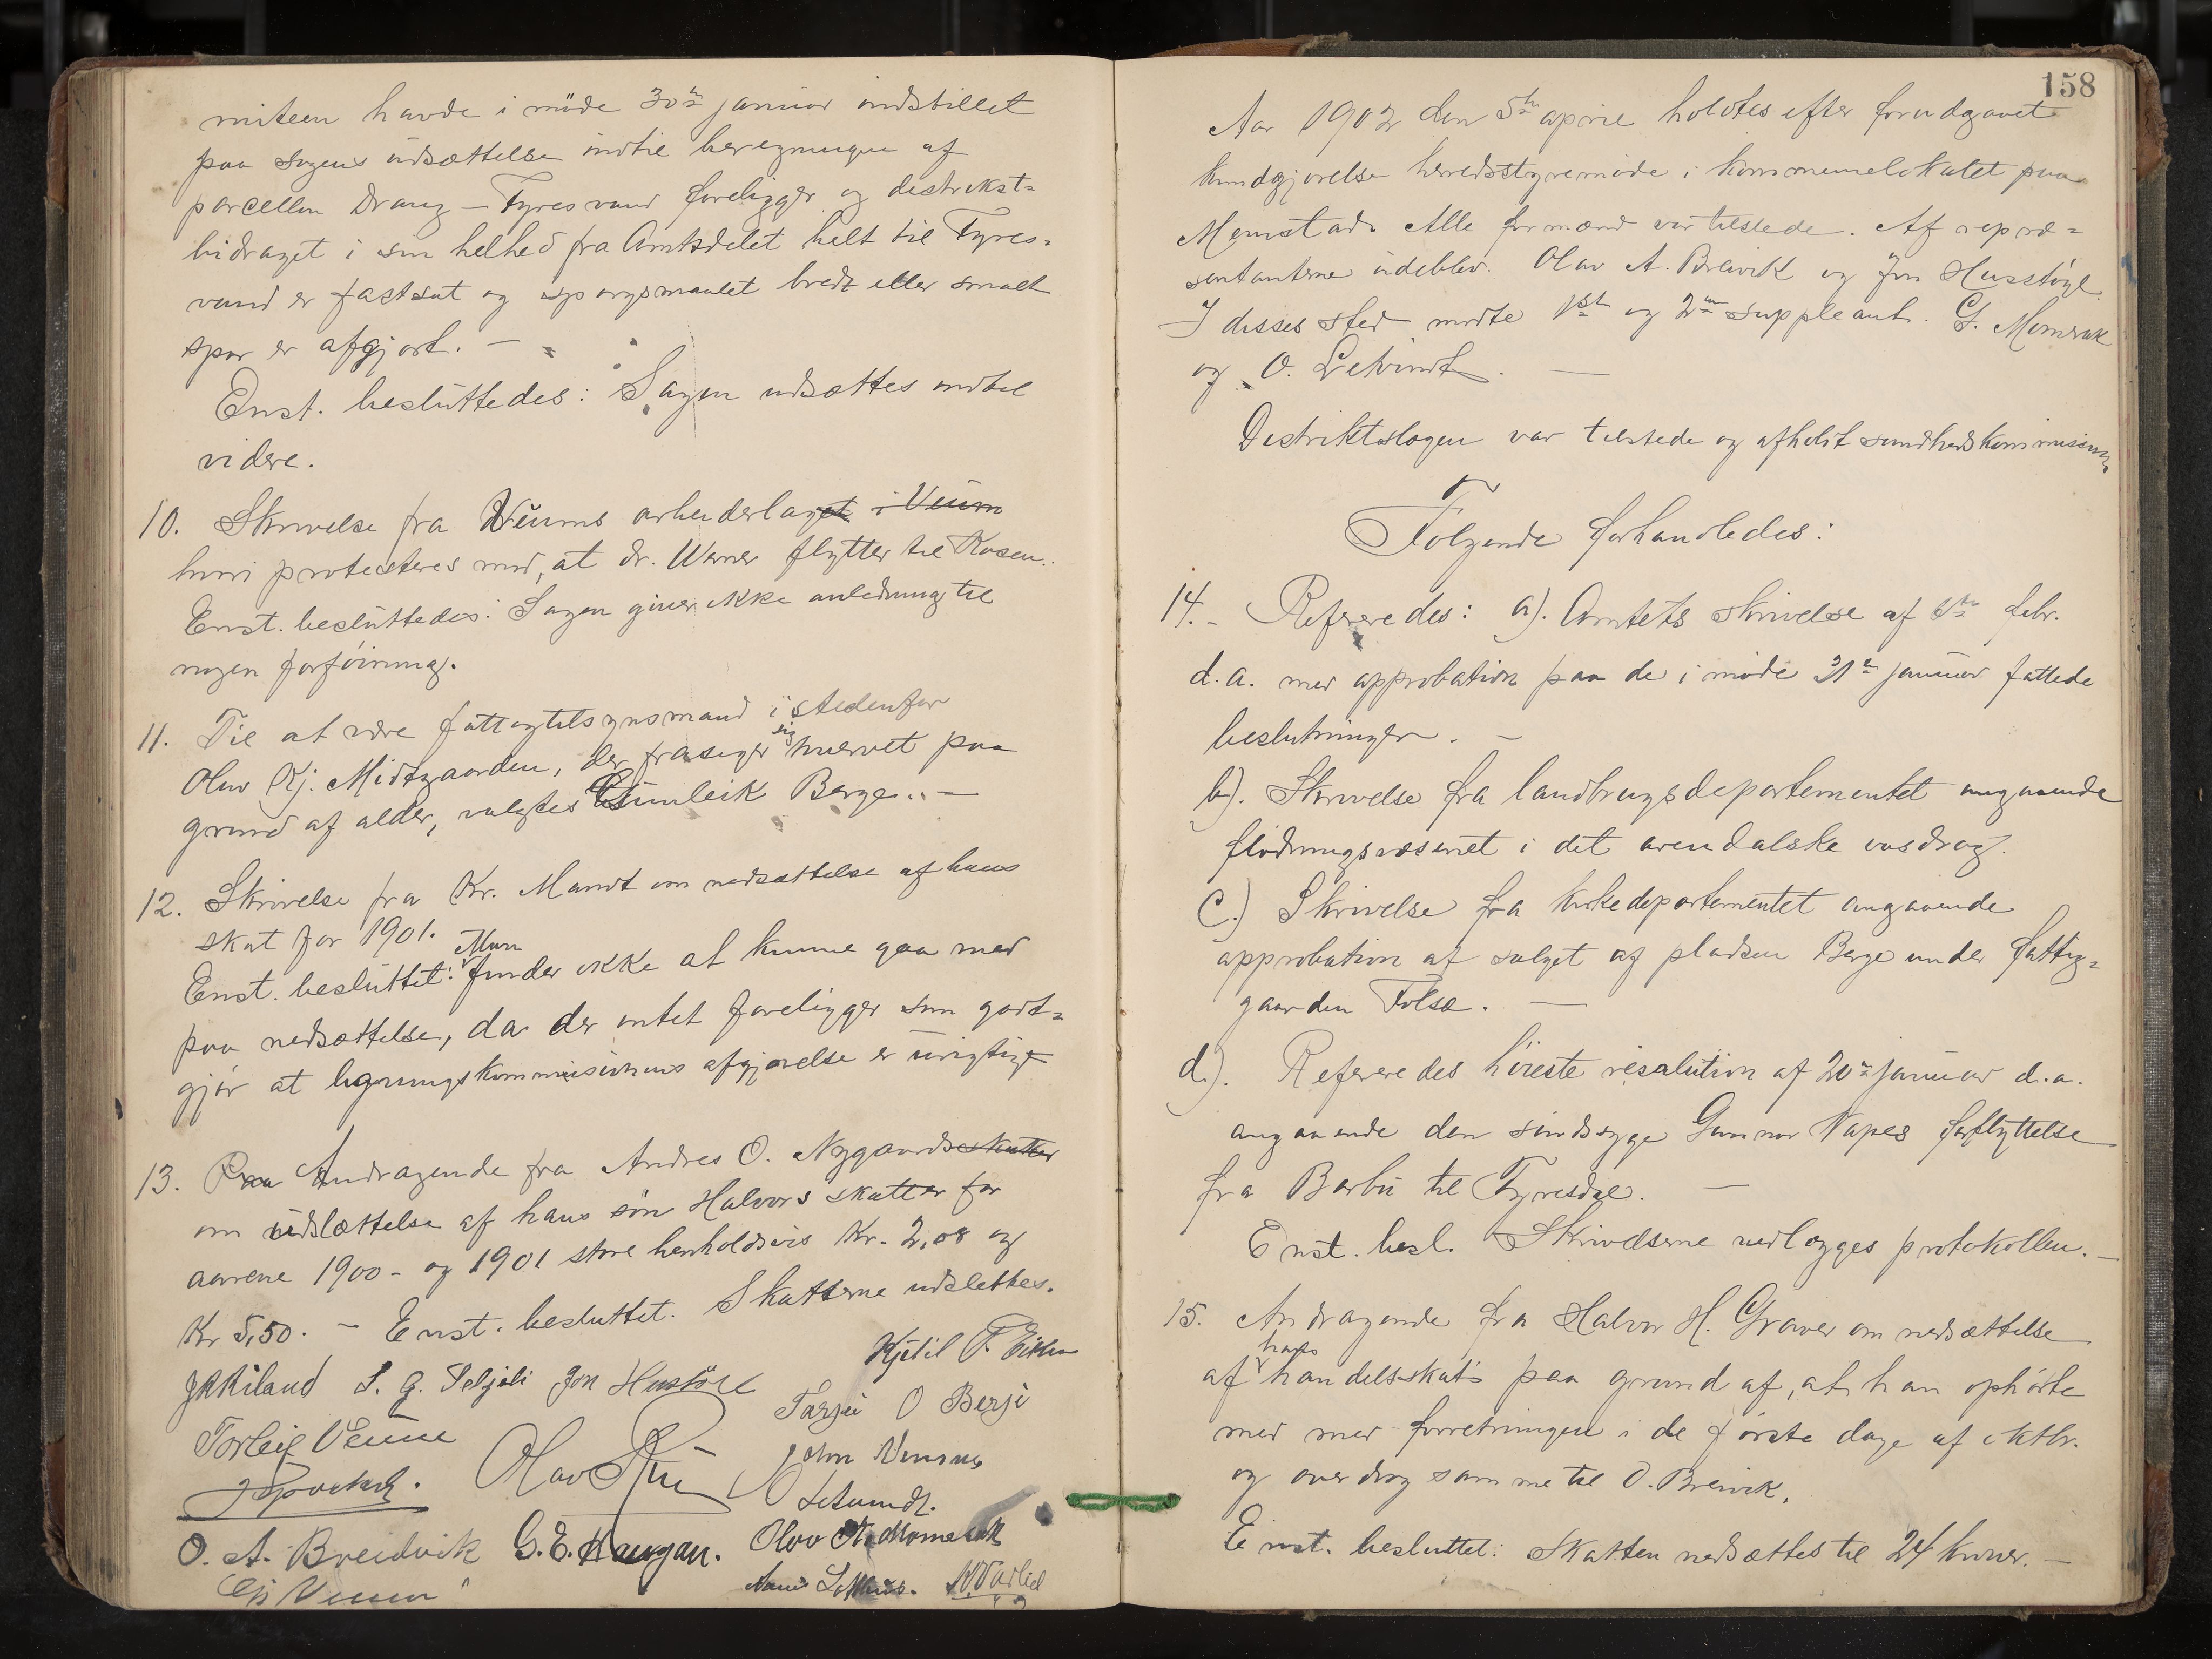 miteen havde i möde 30te januar indstillet
paa sagens udsættelse indtil beregningen af
parcellen Drang – Tyresvand foreligger og distrikst=
bidraget i sin helhed fra Amtsdelet helt til Tyres=
vand er fastsat og spørgsmaalet bredt eller smalt
spor er afgjort. –
Enst. besluttedes: Sagen udsættes indtil
videre.
10. Skrivelse fra Veums arbeiderlaget i Veum
hvori protesteres mod, at dr. Werner flytter til Rosen.
Enst. besluttedes: Sagen giver ikke anledning til
nogen forföining.
11. Til at være fattigtilsynsmand istedenfor
Olav Kj. Midtgaarden, der frasiger sig hvervet paa
grund af alder, valgtes Gunleik Berge. –
12. Skrivelse fra Kr. Mandt om nedsættelse af hans
skat for 1901.
Enst. besluttet: Man finder ikke at kunne gaa med
paa nedsættelse, da der intet foreligger som godt=
gjör at ligningskommissionens afgjørelse er urigtig
13. Paa Andragende fra Andres O. Nygaards skatter
om udslættelse af hans sön Halvors skatter for
aarene 1900- og 1901 store henholdsvis Kr. 2,08 og
Kr 5,50. – Enst. besluttet. Skatterne udslettes.
Kjetil T. Eikен
J K Kiland S. G. Seljeli Jon Hustöil
Tarjei O Berje
Torleif Veum
John Veum
Olav
O. A. Breidvik G. E. Haugan. Olav A. Momrak
Veum
158
Aar 1902 den 5te april holdtes efter forudgaaet
kundgjørelse herredsstyremøde i kommunelokalet paa
Momstad. Alle formænd var tilstede. Af repræ=
sentanterne udeblev. Olav A. Breivik og Jon Husstöyl.
I disses sted mødte 1ste og 2den suppleant. G. Momrak
og O. Letvindt. —
Distriktslægen var tilstede og afholdt sundhedskommission
Følgende forhandledes:
14. – Refereredes: a). Amtets skrivelse af 6te febr.
d.a. med approbation paa de i möde 31te januar fattede
beslutninger. –
b). Skrivelse fra landbrugsdepartementet angaaende
flödningsvæsenet i det arendalske vasdrag.
c.) Skrivelse fra kirkedepartementet angaaende
approbation af salget af pladsen Berge under fattig=
gaarden Folsæ. —
d.). Refereredes höieste resolution af 20de januar d.a.
angaaende den sindssyge Gunnar Napes forflyttelse
fra Barbu til Tyresdal. —
Enst. besl. Skrivelserne vedlægges protokollen. —
15. Andragende fra Halvor H. Graver om nedsættelse
af hans handelsskat paa grund af, at han ophörte
med med forretningen i de förste dage af oktbr.
og overdrog samme til O. Breivik.
Enst. besluttet: Skatten nedsættes til 24 kroner. –